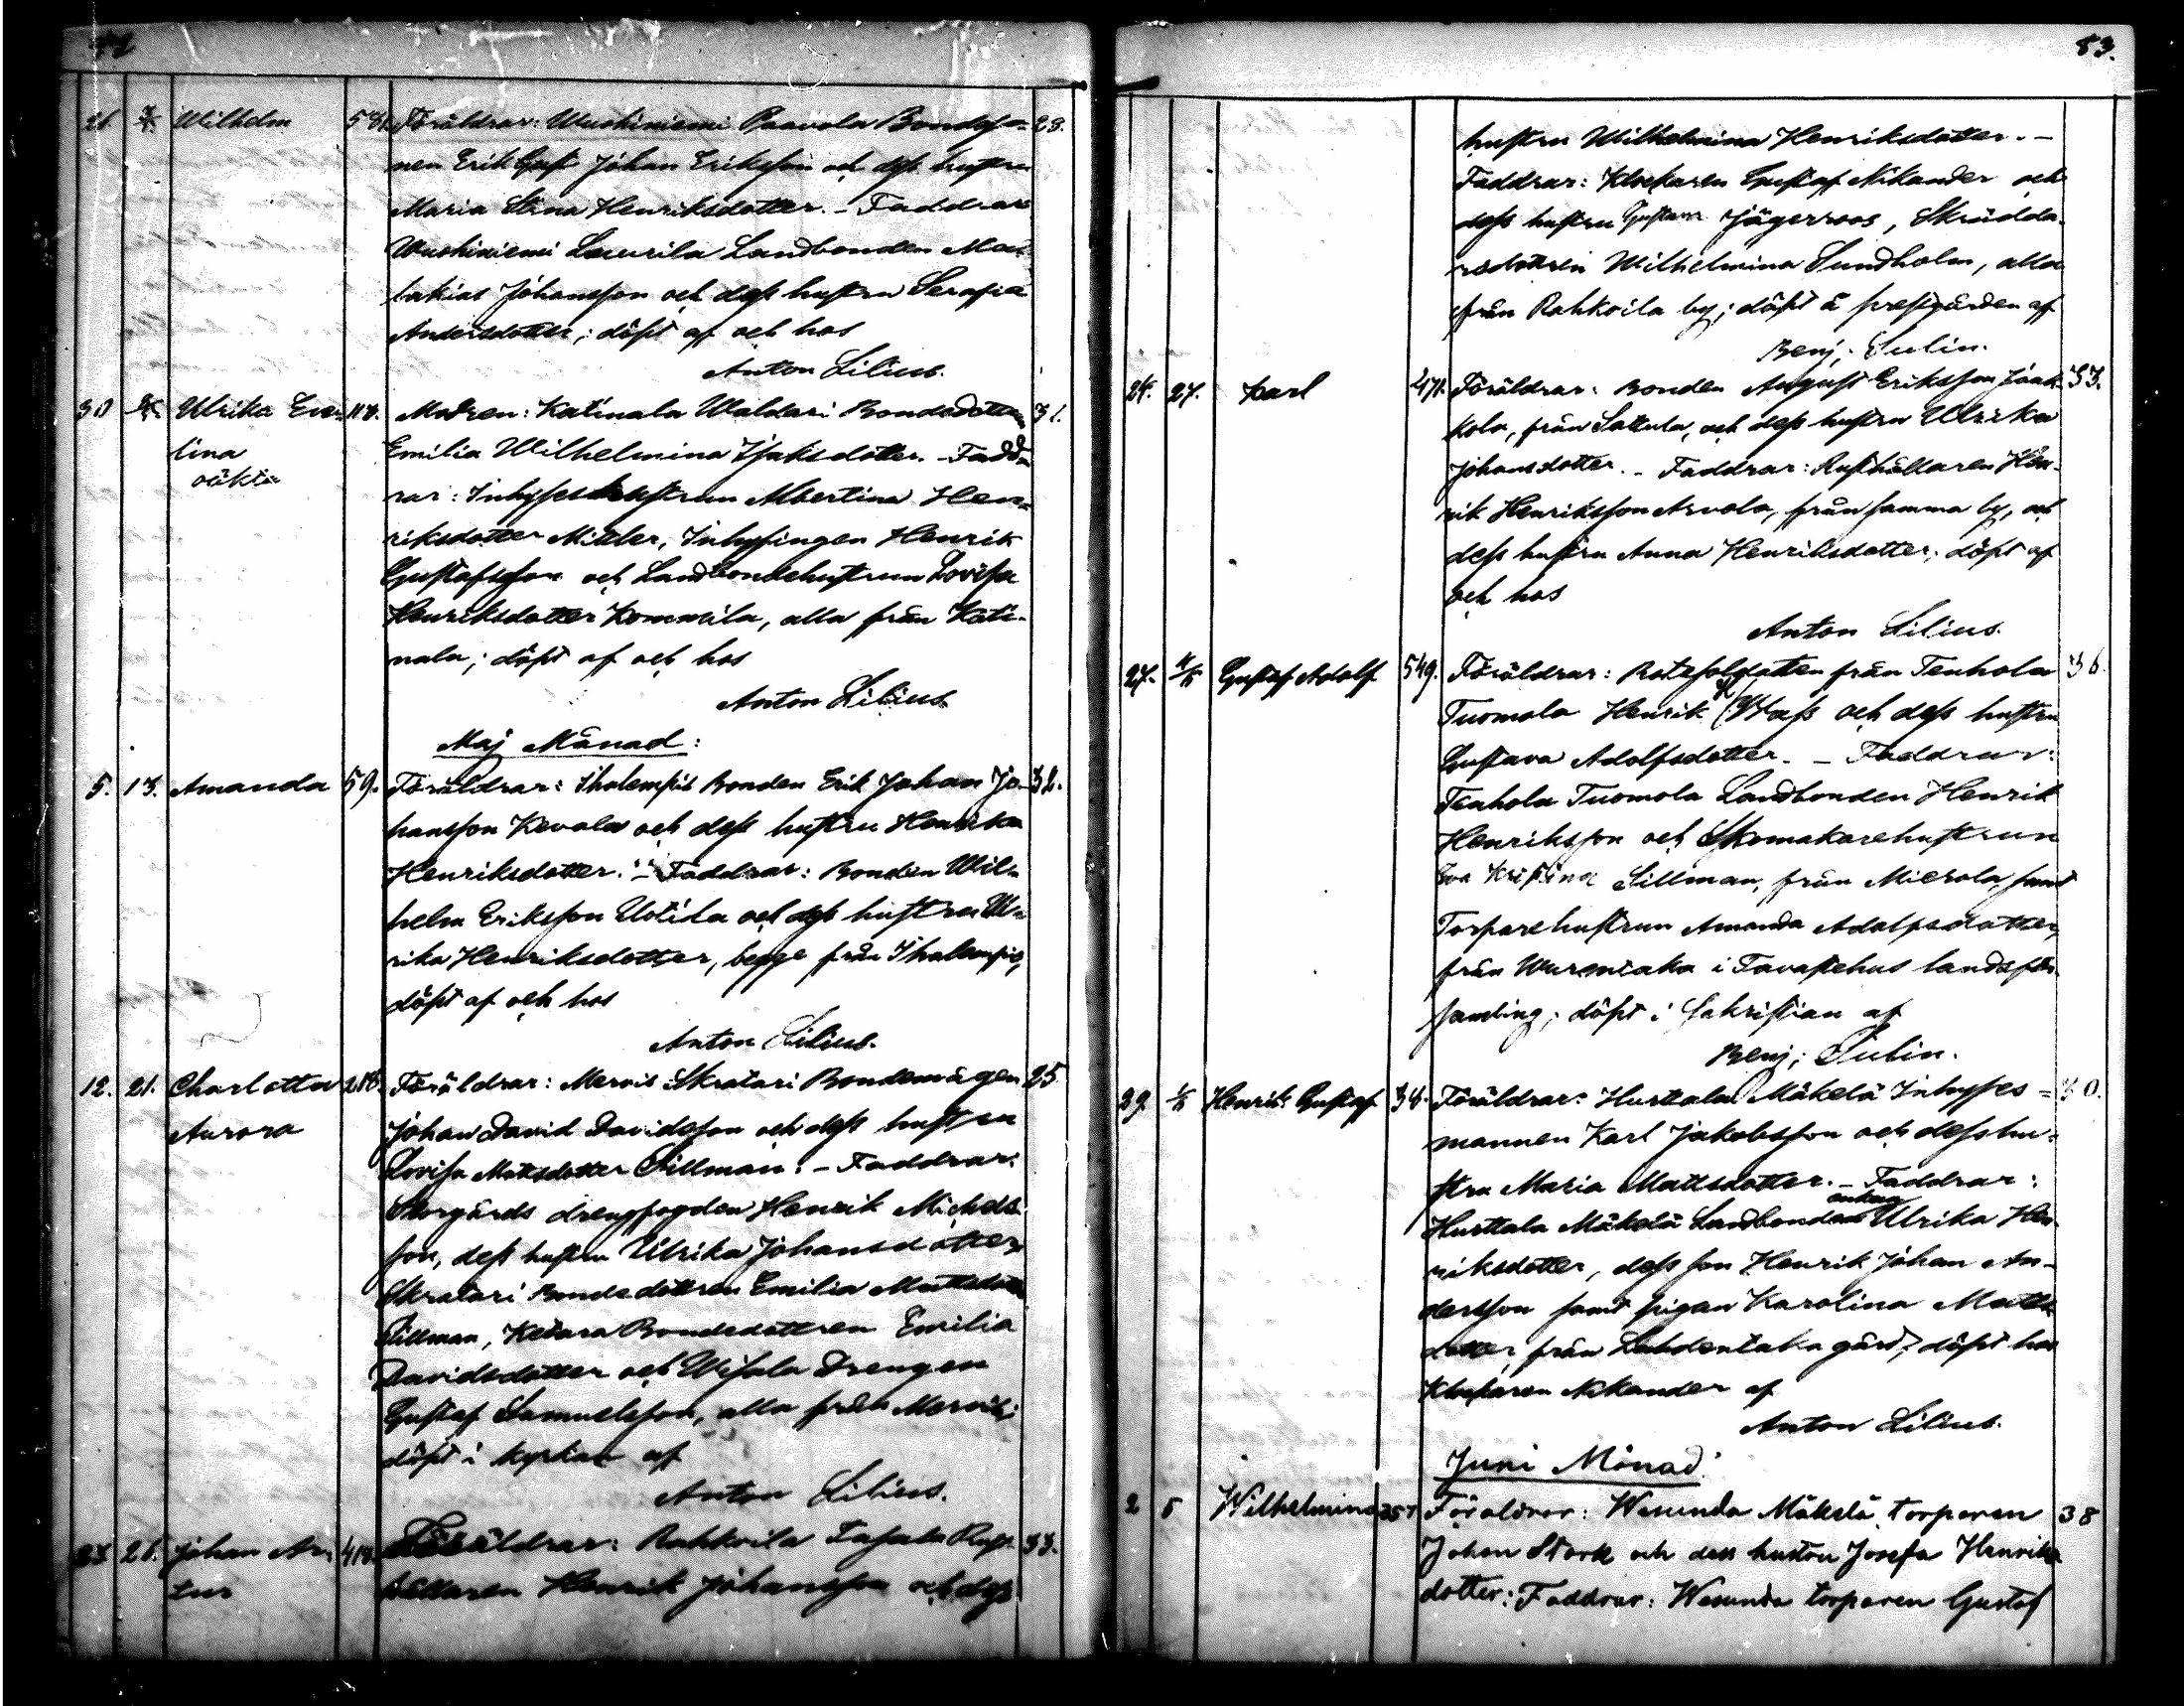 26. Wilhelm 581. Föräldrar: Wuohiniemi Paavola Bondeso- 28.
nen Erik Gust. Johan Eriksson och dess hustru
Maria Stina Henriksdotter. - Faddrar
Wuohiniemi Laurila Landbonden Ma-
lakias Johansson och dess hustru Serafia
Andersdotter; döpt af och hos
Anton Lilius.
30 Ulrika Eve- 117. Modren: Katinala Waldari Bondedottren 31.
lina Emilia Wilhelmina Isaksdotter. - Fadd-
oäkta rar: Inhyseshustrun Albertina Hen-
riksdotter Miller, Inhysingen Henrik
Gustafsson och Landbondehustrun Lovisa
Henriksdotter Kommila, alla från Kati-
nala; döpt af och hos
Anton Lilius.
Maj Månad:
5. 13. Amanda 59. Föräldrar: Ihalempis Bonden Erik Johan Jo- 32.
hansson Kevola och dess hustru Henrika
Henriksdotter. - Faddrar: Bonden Wil-
helm Eriksson Uotila och dess hustru Ul-
rika Henriksdotter, begge från Ihalempis,
döpt af och hos
Anton Lilius.
12. 21. Charlotta 218. Föräldrar: Mervis Skratari Bondemågen 25
Aurora Johan David Davidsson och dess hustru
Lovisa Mattsdotter Sillman. - Faddrar:
Storgårds drengfogden Henrik Michels-
son, dess hustru Ulrika Johansdotter,
Skratari Bondedottren Emilia Mattsdotter
Sillman, Ketara Bondedottren Emilia
Davidsdotter och Wisala Drengen
Gustaf Samuelsson, alla från Mervis;
döpt i kyrkan af
Anton Lilius.
23. 26. Johan Ar- 418. Föräldrar: Rahkoila Rust- 33.
tur hållaren Henrik Johansson och dess
83.
hustru Wilhelmina Henriksdotter. -
Faddrar: Klockaren Gustaf Nikander och
dess hustru Gustava Jägerroos, Skrädda-
redottren Wilhelmina Sundholm, alla
från Rahkoila by; döpt å prestgården af
Benj. Sulin.
24. 27. Karl 471. Föräldrar: Bonden August Eriksson Jaak- 33.
kola, från Sattula, och dess hustru Ulrika
Johansdotter. - Faddrar: Rusthållaren Hen-
rik Henriksson Arvola, från samma by, och
dess hustru Anna Henriksdotter; döpt af
och hos
Anton Lilius.
27. Gustaf Adolf 549. Föräldrar: Rotesoldaten från Tenhola 36.
Tuomola Henrik och dess hustru
Gustava Adolfsdotter. - Faddrar:
Tenhola Tuomola Landbonden Henrik
Henriksson och Skomakarehustrun
Eva Kristina Sillman, från Mierola, samt
Torparehustrun Amanda Adolfsdotter,
från Wurentaka i Tavastehus landsför-
samling; döpt i Sakristian af
Benj. Sulin.
29. Henrik Gustaf 34. Föräldrar: Hurttala Mäkelä Inhyses- 30.
mannen Karl Jakobsson och dess hu-
stru Maria Mattsdotter. - Faddrar:
Hurttala Mäkelä Landbonde enkan Ulrika Hen-
riksdotter, dess son Henrik Johan An-
dersson samt pigan Karolina Matts-
dotter från Lahdentaka gård; döpt hos
Klockaren Nikander af
Anton Lilius.
Juni Månad.
2 5 Wilhelmina 357 Föräldrar: Wesunda Mäkelä torparen 38
Johan Stark och dess hustru Josefa Henriks-
dotter: Faddrar: Wesunda torparen Gustaf